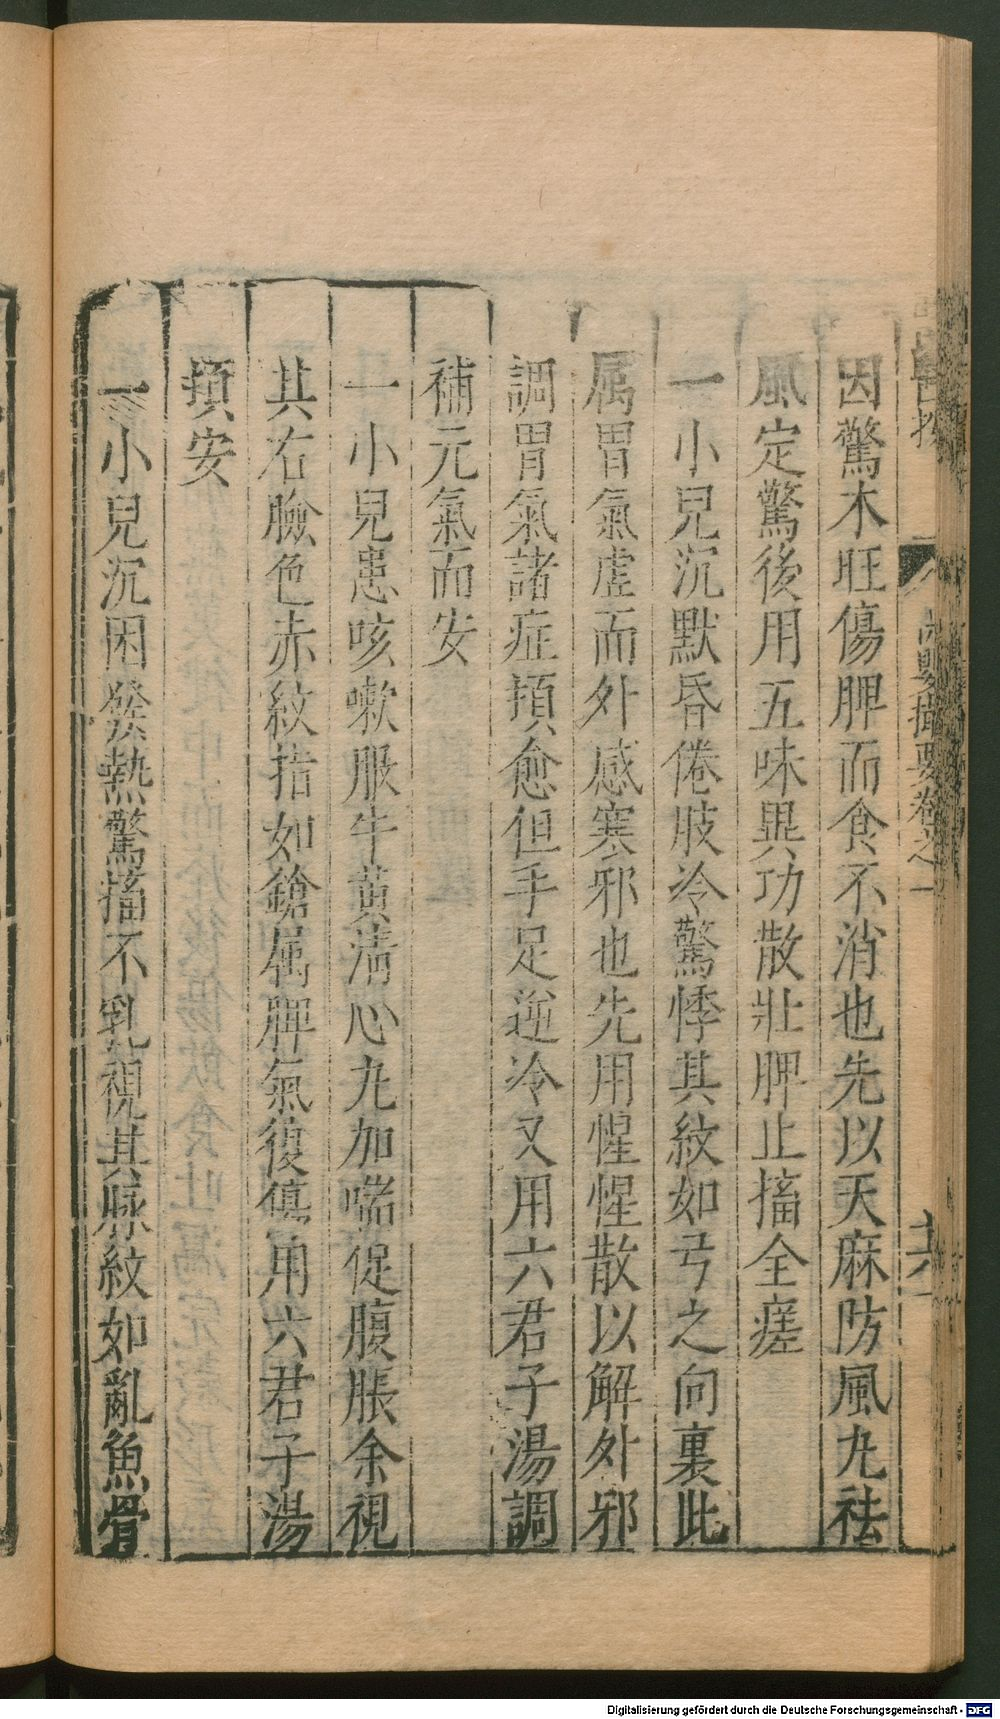 因驚木旺傷脾而食不消也先以天麻防風丸祛
風定驚後用五味異功散壯脾止搐全瘥
一小兒沉默昏倦肢冷驚悸其紋如弓之向裏此
属胃氣虛而外感寒邪也先用惺惺散以解外邪
調胃氣諸症頓愈但手足逆冷又用六君子湯調
補元氣而安
一小兒患咳嗽服牛黄清心丸加喘促腹脹余視
其右臉色赤紋指如鎗属脾氣復傷用六君子湯
頓安
一小兒沉困發熱驚搐不乳視其脉紋如亂魚骨
嬰撮要卷之一
十六
Digitalisierung gefördert durch die Deutsche Forschungsgemeinschaft - DFG